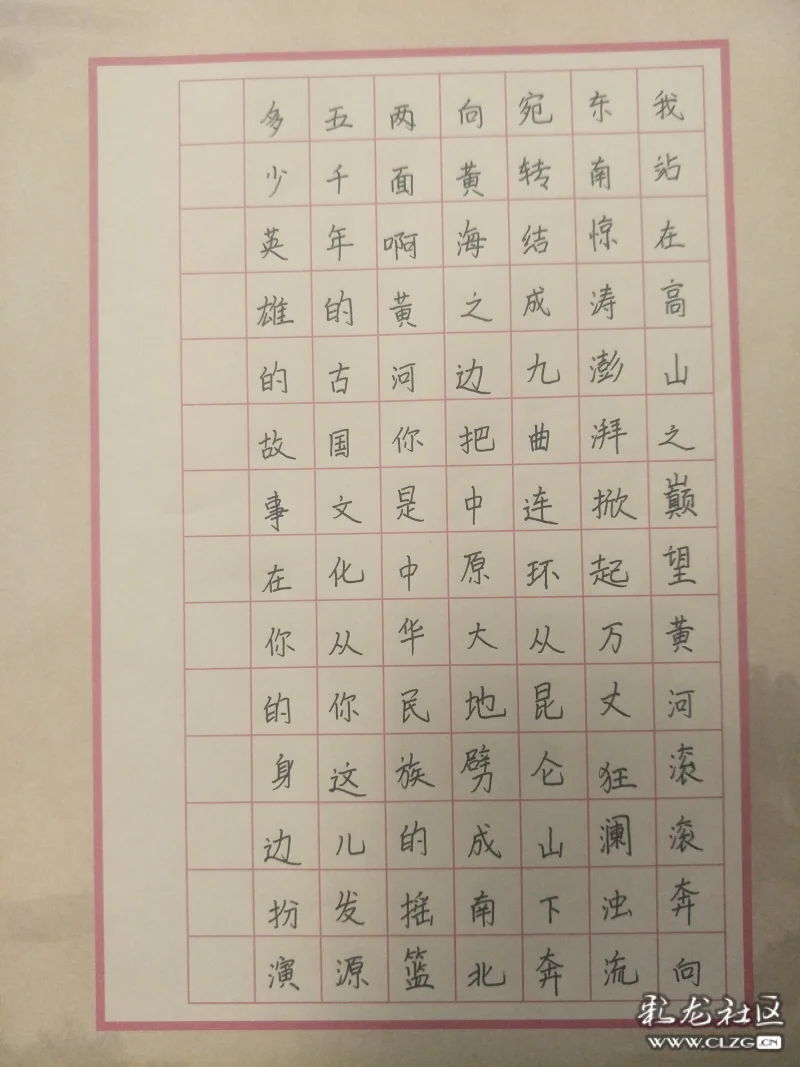 我站在高山之巅望黄河滚滚奔向
东南惊涛澎湃掀起万丈狂澜浊流
宛转结成九曲连环从昆仑山下奔
向黄海之边把中原大地劈成南北
两面啊黄河你是中华民族的摇篮
五千年的古国文化从你这儿发源
多少英雄的故事在你的身边扮演
彩龙社区
www.CLZG.CN